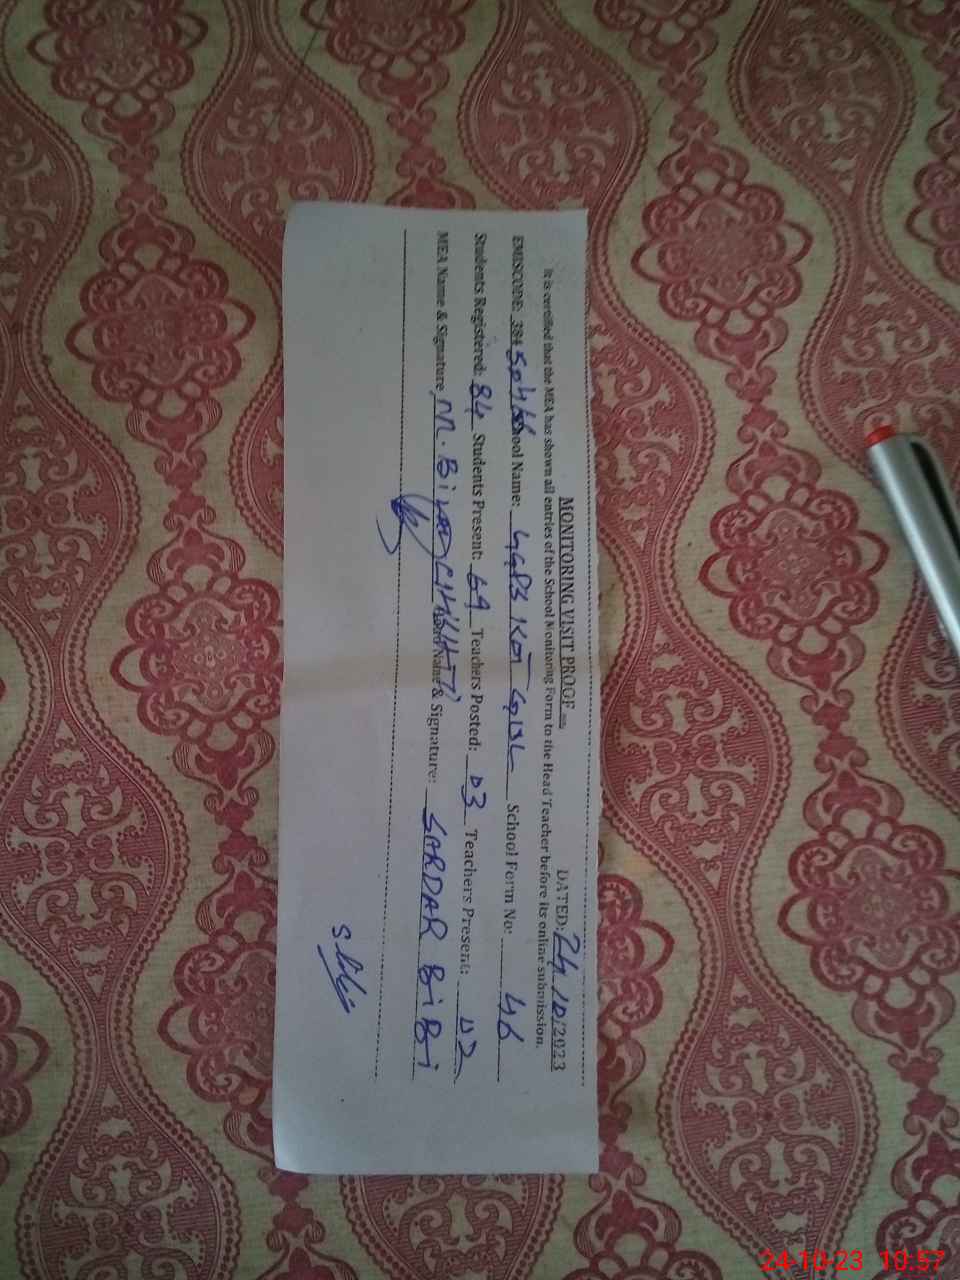 MONITORING VISIT PROOF
DATED: 24/10/2023
It is certified that the MEA has shown all entries of the School Monitoring Form to the Head Teacher before its online submission.
EMISCODE: 384 School Name: GGPS KOT GUL School Form No: 46
Students Registered: 84 Students Present: 69 Teachers Posted: 03 Teachers Present: 02
MEA Name & Signature M. Name & Signature: SARDAR BiBi
24-10-23 10:57